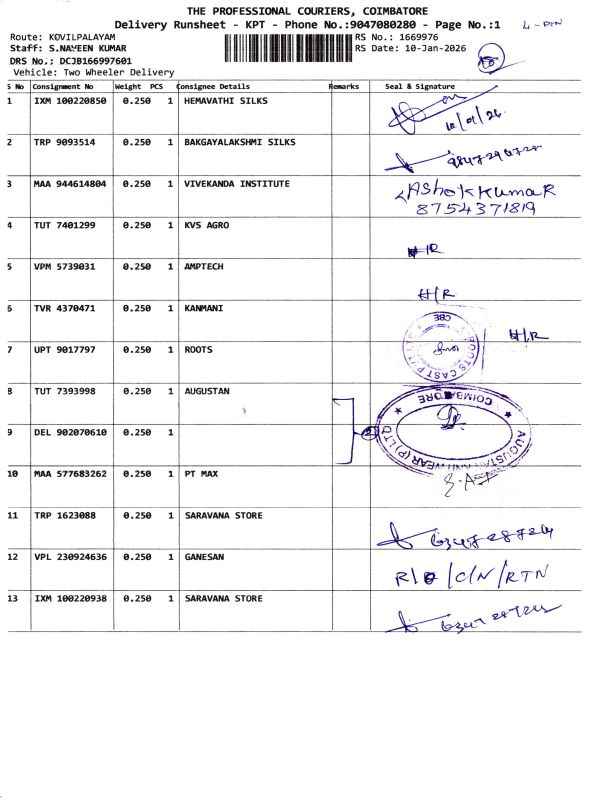 THE PROFESSIONAL COURIERS, COIMBATORE
Delivery Runsheet - KPT - Phone No.:9047080280 - Page No.:1
Route: KOVILPALAYAM
RS No.: 1669976
Staff: S.NAVEEN KUMAR
RS Date: 10-Jan-2026
DRS No.: DCJB166997601
Vehicle: Two Wheeler Delivery
S No Consignment No Weight PCS Consignee Details Remarks Seal & Signature
1 IXM 100220850 0.250 1 HEMAVATHI SILKS
2 TRP 9093514 0.250 1 BAKGAYALAKSHMI SILKS
3 MAA 944614804 0.250 1 VIVEKANDA INSTITUTE AShokkumaR
8754371819
4 TUT 7401299 0.250 1 KVS AGRO
5 VPM 5739031 0.250 1 AMPTECH H/R
6 TVR 4370471 0.250 1 KANMANI H/R
7 UPT 9017797 0.250 1 ROOTS
8 TUT 7393998 0.250 1 AUGUSTAN COIMBATORE
9 DEL 902070610 0.250 1
10 MAA 577683262 0.250 1 PT MAX
11 TRP 1623088 0.250 1 SARAVANA STORE
12 VPL 230924636 0.250 1 GANESAN /C/N/RTN
13 IXM 100220938 0.250 1 SARAVANA STORE